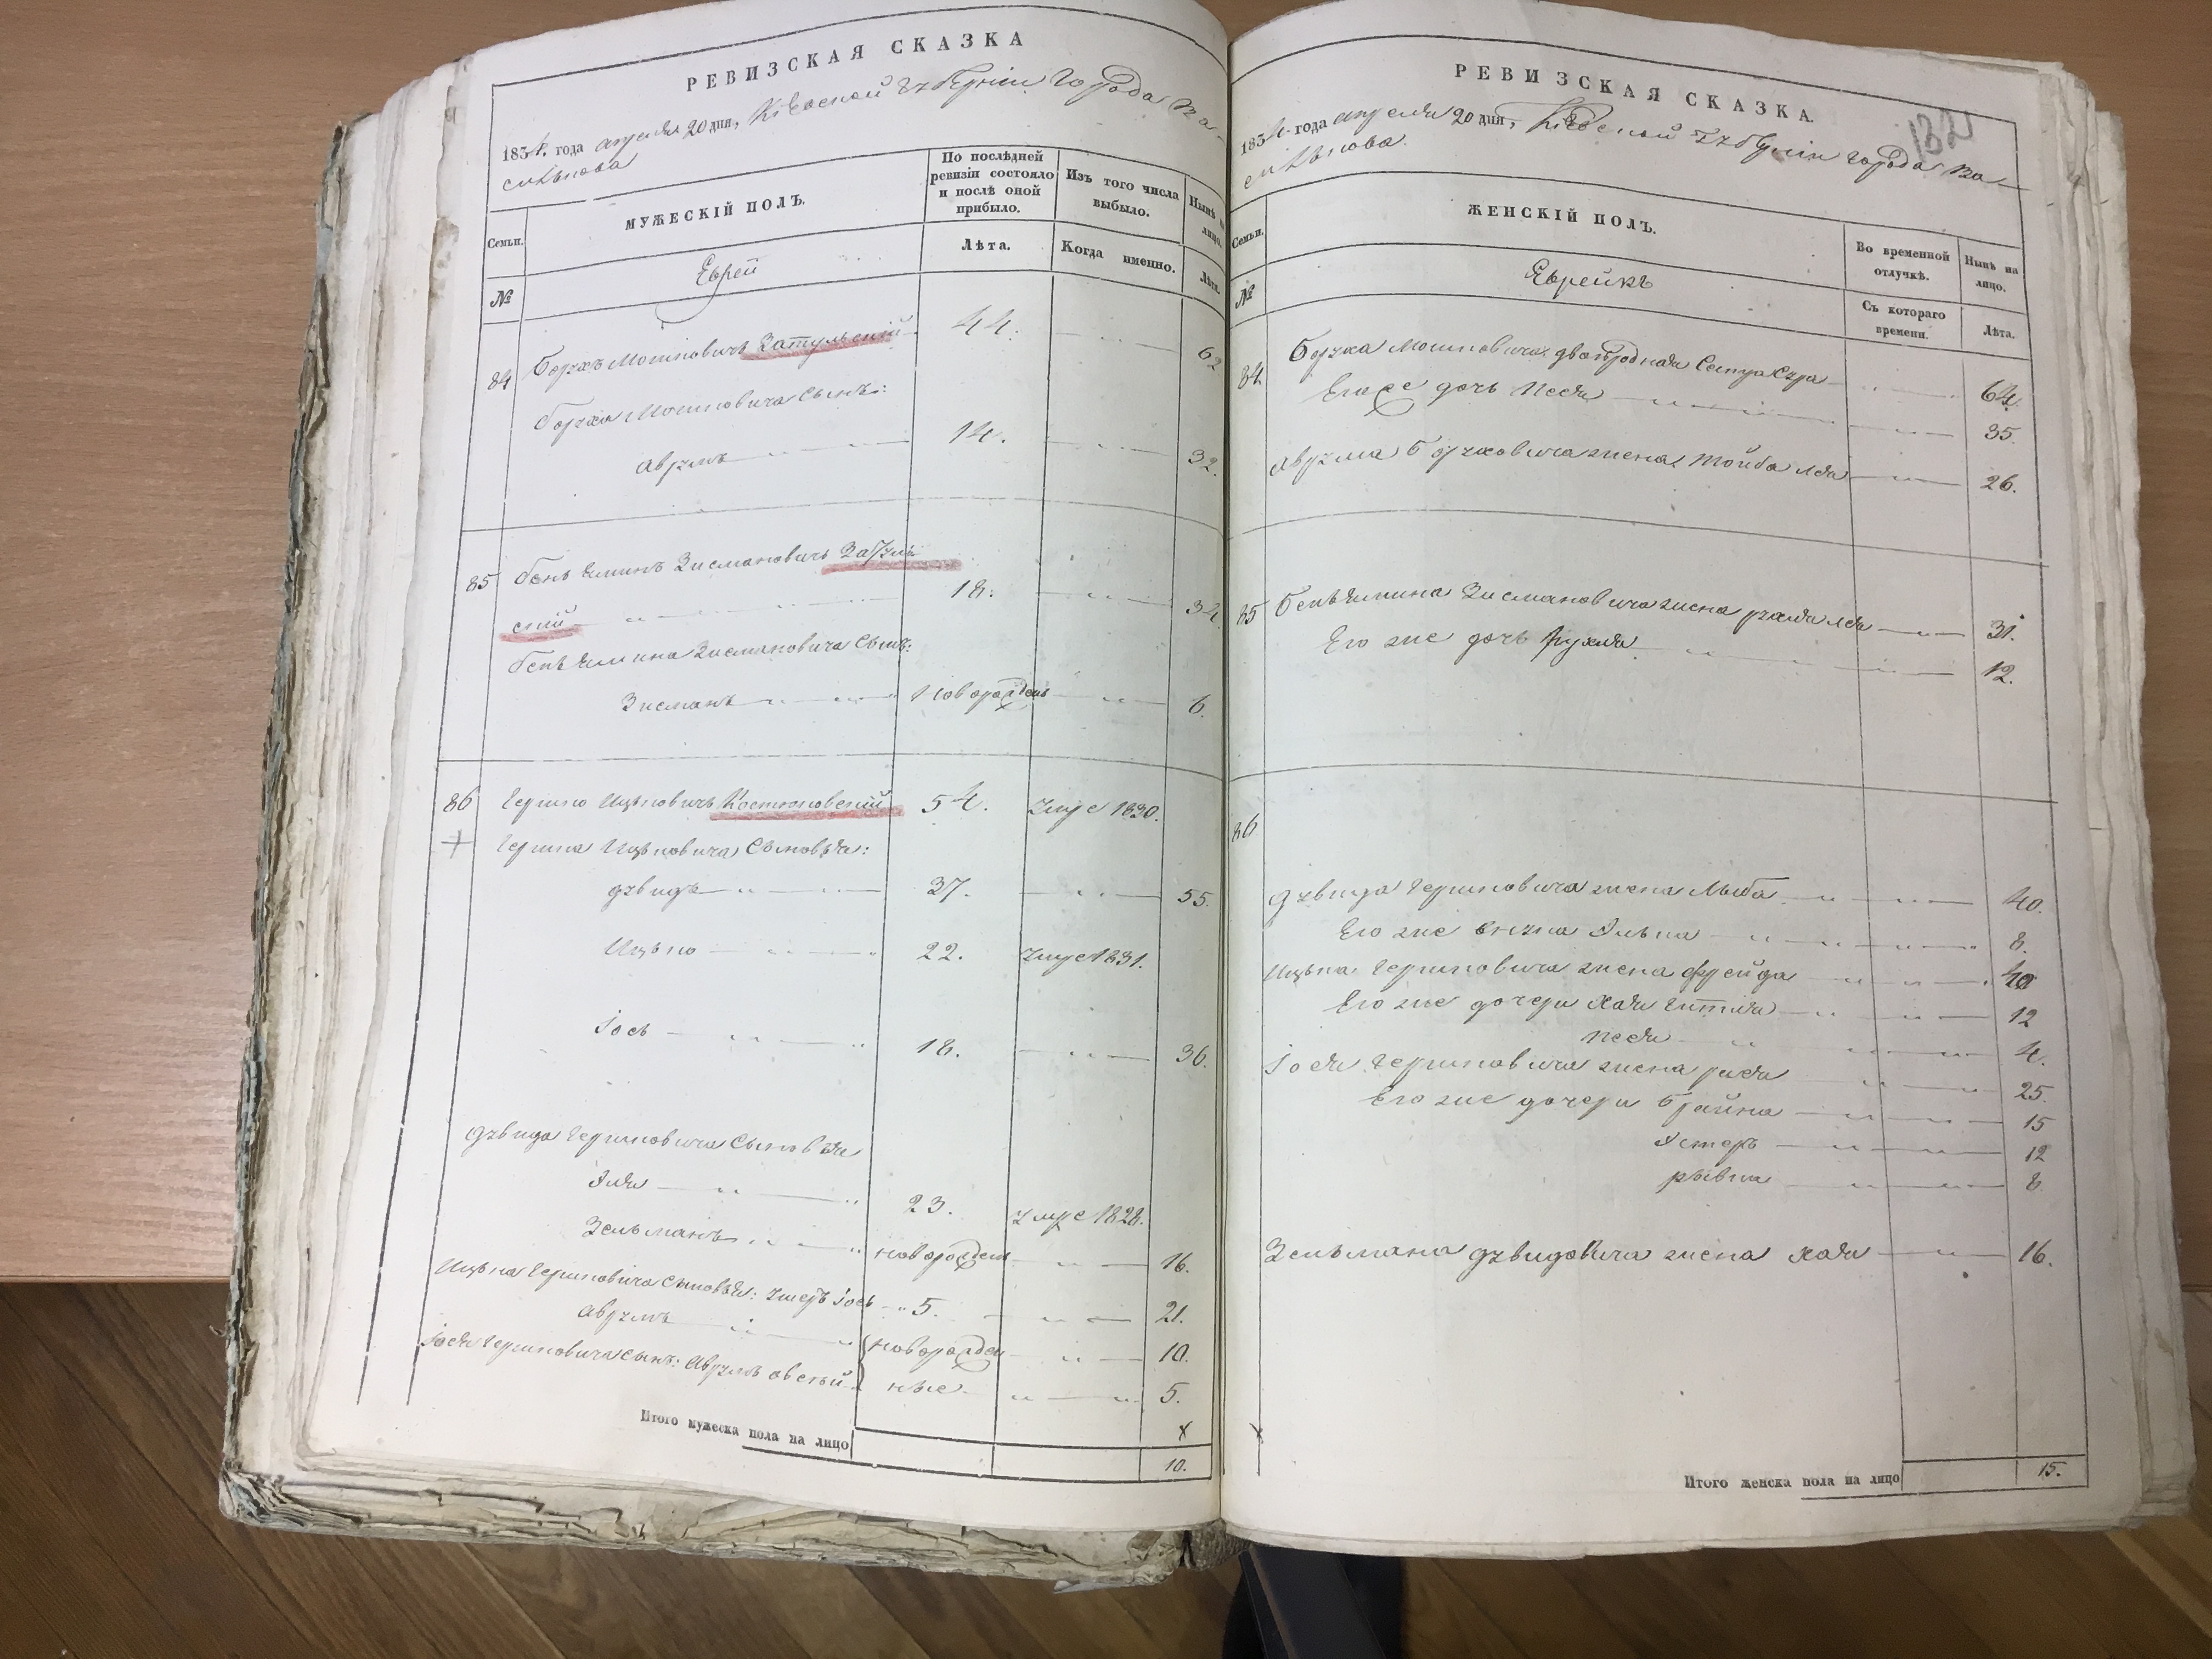 РЕВИЗСКАЯ СКАЗКА
1834. года апреля 20 дня, Кіевской губерніи города Ва-
силькова
Семьи.
МУЖЕСКІЙ ПОЛЪ.
По послѣдней ревизіи состояло и послѣ оной прибыло.
Изъ того числа выбыло.
Нынѣ на лицо.
№
Еврей
Лѣта.
Когда именно.
Лѣта.
84 Борухъ Мошковичъ Затульскій 44. 62
Боруха Мошковича Сынъ:
Аврумъ 14. 32.
85 Беньяминъ Зисмановичъ
скій 18. 34.
Беньямина Зисмановича Сынъ:
Зисманъ Новорожден 6.
86 Гершко Ицьковичъ 54. умре 1830.
Гершка Ицьковича Сыновья:
Дувидъ 37. 55.
Ицько 22. умре 1831.
Іось 18. 36.
Дувида Гершковича Сыновья
Эля 23. умре 1828.
Зельманъ новорожден 16.
Ицька Гершковича Сыновья: Іось 5. 21.
Аврумъ новорожден 10.
Іося Гершковича Сынъ: Аврумъ Овсѣй ные 5.
Итого мужеска пола на лицо 10.
РЕВИЗСКАЯ СКАЗКА.
132
1834. года апреля 20 дня, Кіевской Губерніи города Ва-
силькова.
Семьи.
ЖЕНСКІЙ ПОЛЪ.
Во временной отлучкѣ.
Нынѣ на лицо.
№
Еврейкъ
Съ котораго времени.
Лѣта.
84 Боруха Мошковича двоюродная Сестра Сура 64.
Ея же дочь Песя 35.
Аврума Боруховича жена Тойба Лея 26.
85 Беньямина Зисмановича жена Рухля Лея 31.
Его же дочь Фрухля 12.
86
Дувида Гершковича жена Лыба 40.
Его же внука Элька 8.
Ицька Гершковича жена Фрейда 40
Его же дочери Хая Гитля 12
Песя 4.
Іося Гершковича жена Рися 25.
Его же дочери Брайна 15
Эстеръ 12
Рывка 8
Зельмана Дувидовича жена Хая 16.
Итого женска пола на лицо 15.